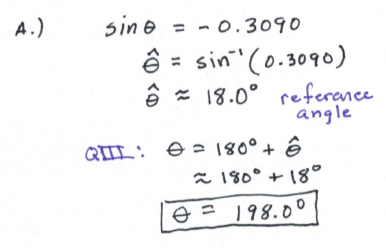 A.) sin θ = - 0.3090
θ̂ = sin⁻¹(0.3090)
θ̂ ≈ 18.0° reference angle
QIII: θ = 180° + θ̂
≈ 180° + 18°
θ = 198.0°